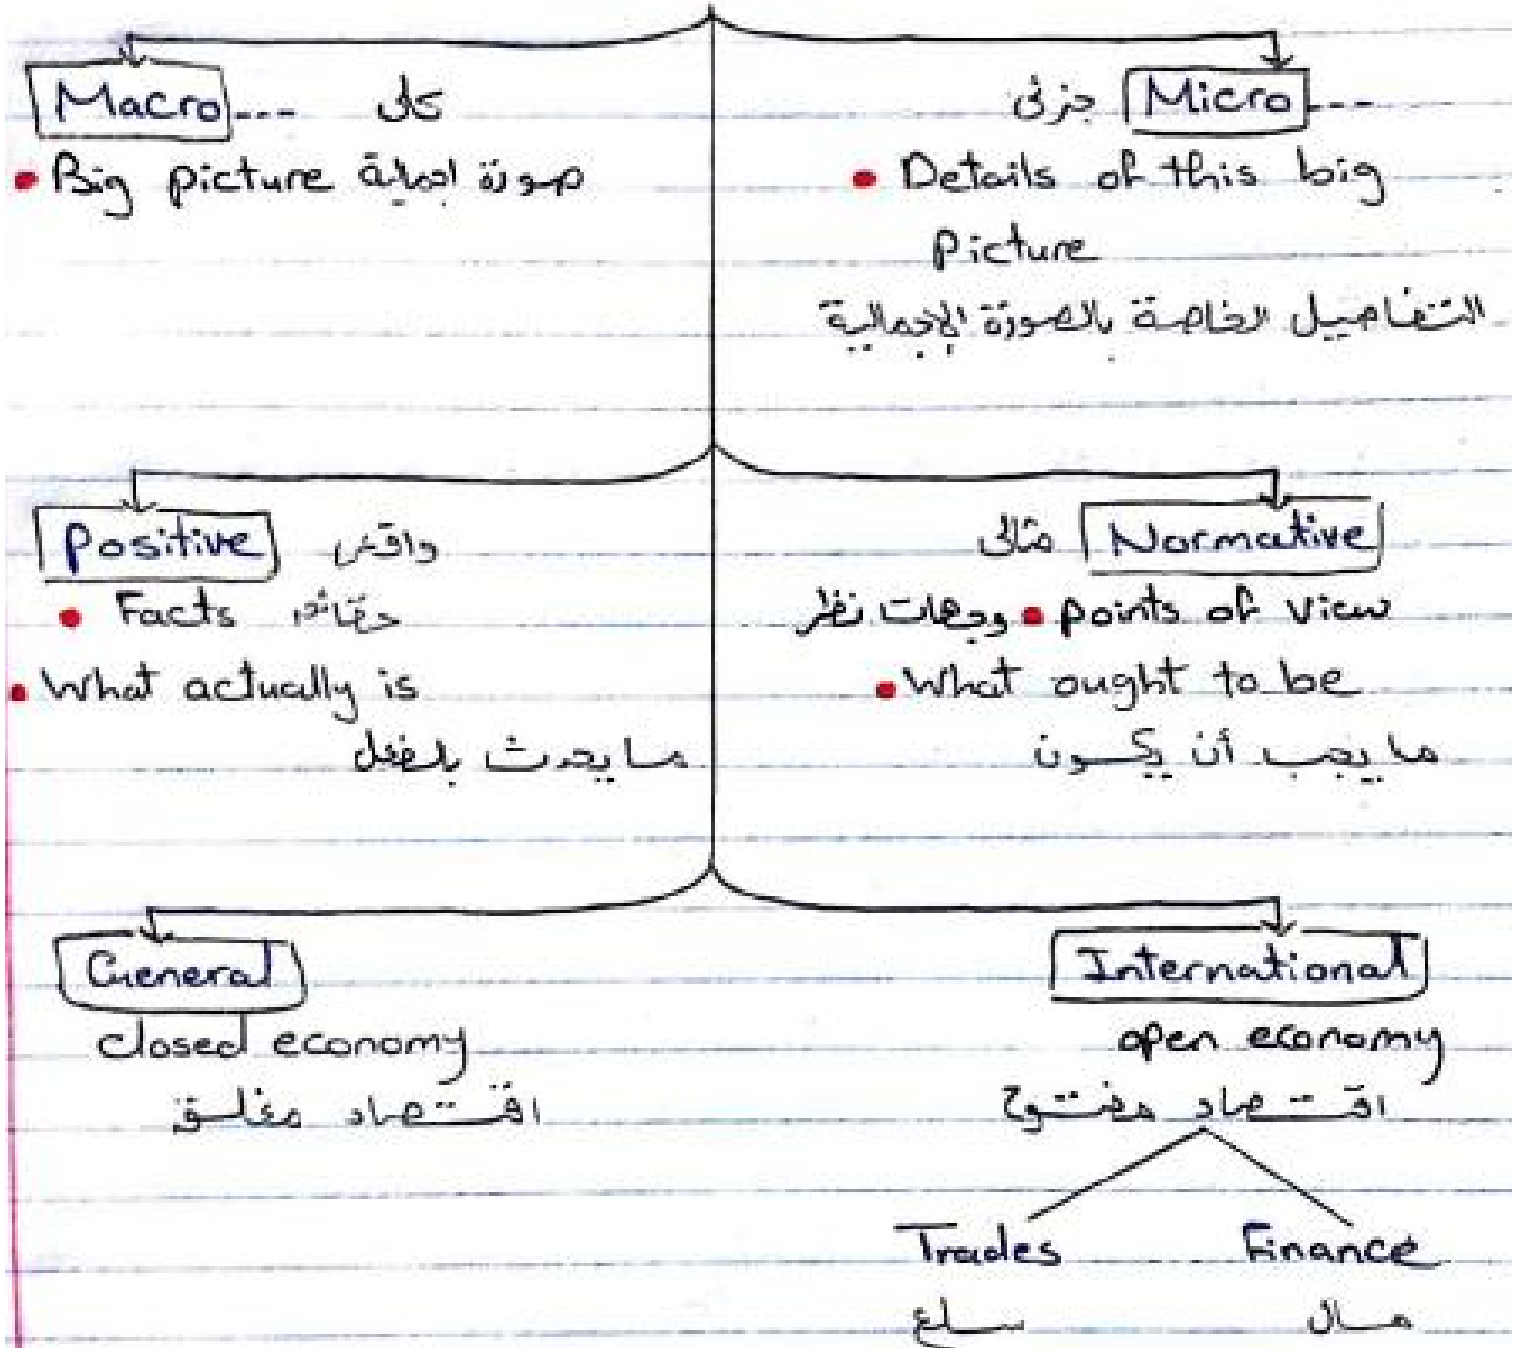 Macro --- كلى
• Big picture صورة اجمالية
جزئى Micro ---
• Details of this big
picture
التفاصيل الخاصة بالصورة الإجمالية
Positive واقعى
• Facts حقائق
• What actually is
ما يحدث بالفعل
مثالى Normative
وجهات نظر • points of view
• What ought to be
ما يجب أن يكون
General
closed economy
اقتصاد مغلق
International
open economy
اقتصاد مفتوح
Trades Finance
سلع مال